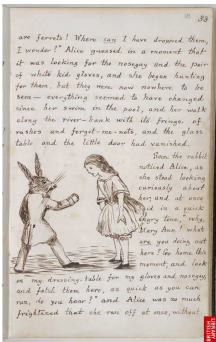 33
are ferrets! Where can I have dropped them,
I wonder?" Alice guessed in a moment that
it was looking for the nosegay and the pair
of white kid gloves, and she began hunting
for them, but they were now nowhere to be
seen — everything seemed to have changed
since her swim in the pool, and her walk
along the river-bank with its fringe of
rushes and forget-me-nots, and the glass
table and the little door had vanished.
Soon the rabbit
noticed Alice, as
she stood looking
curiously about
her, and at once
said in a quick
angry tone, "why,
Mary Ann! what
are you doing out
here? Go home this
moment, and look
on my dressing-table for my gloves and nosegay,
and fetch them here, as quick as you can
run, do you hear?" and Alice was so much
frightened that she ran off at once, without
BRITISH
LIBRARY